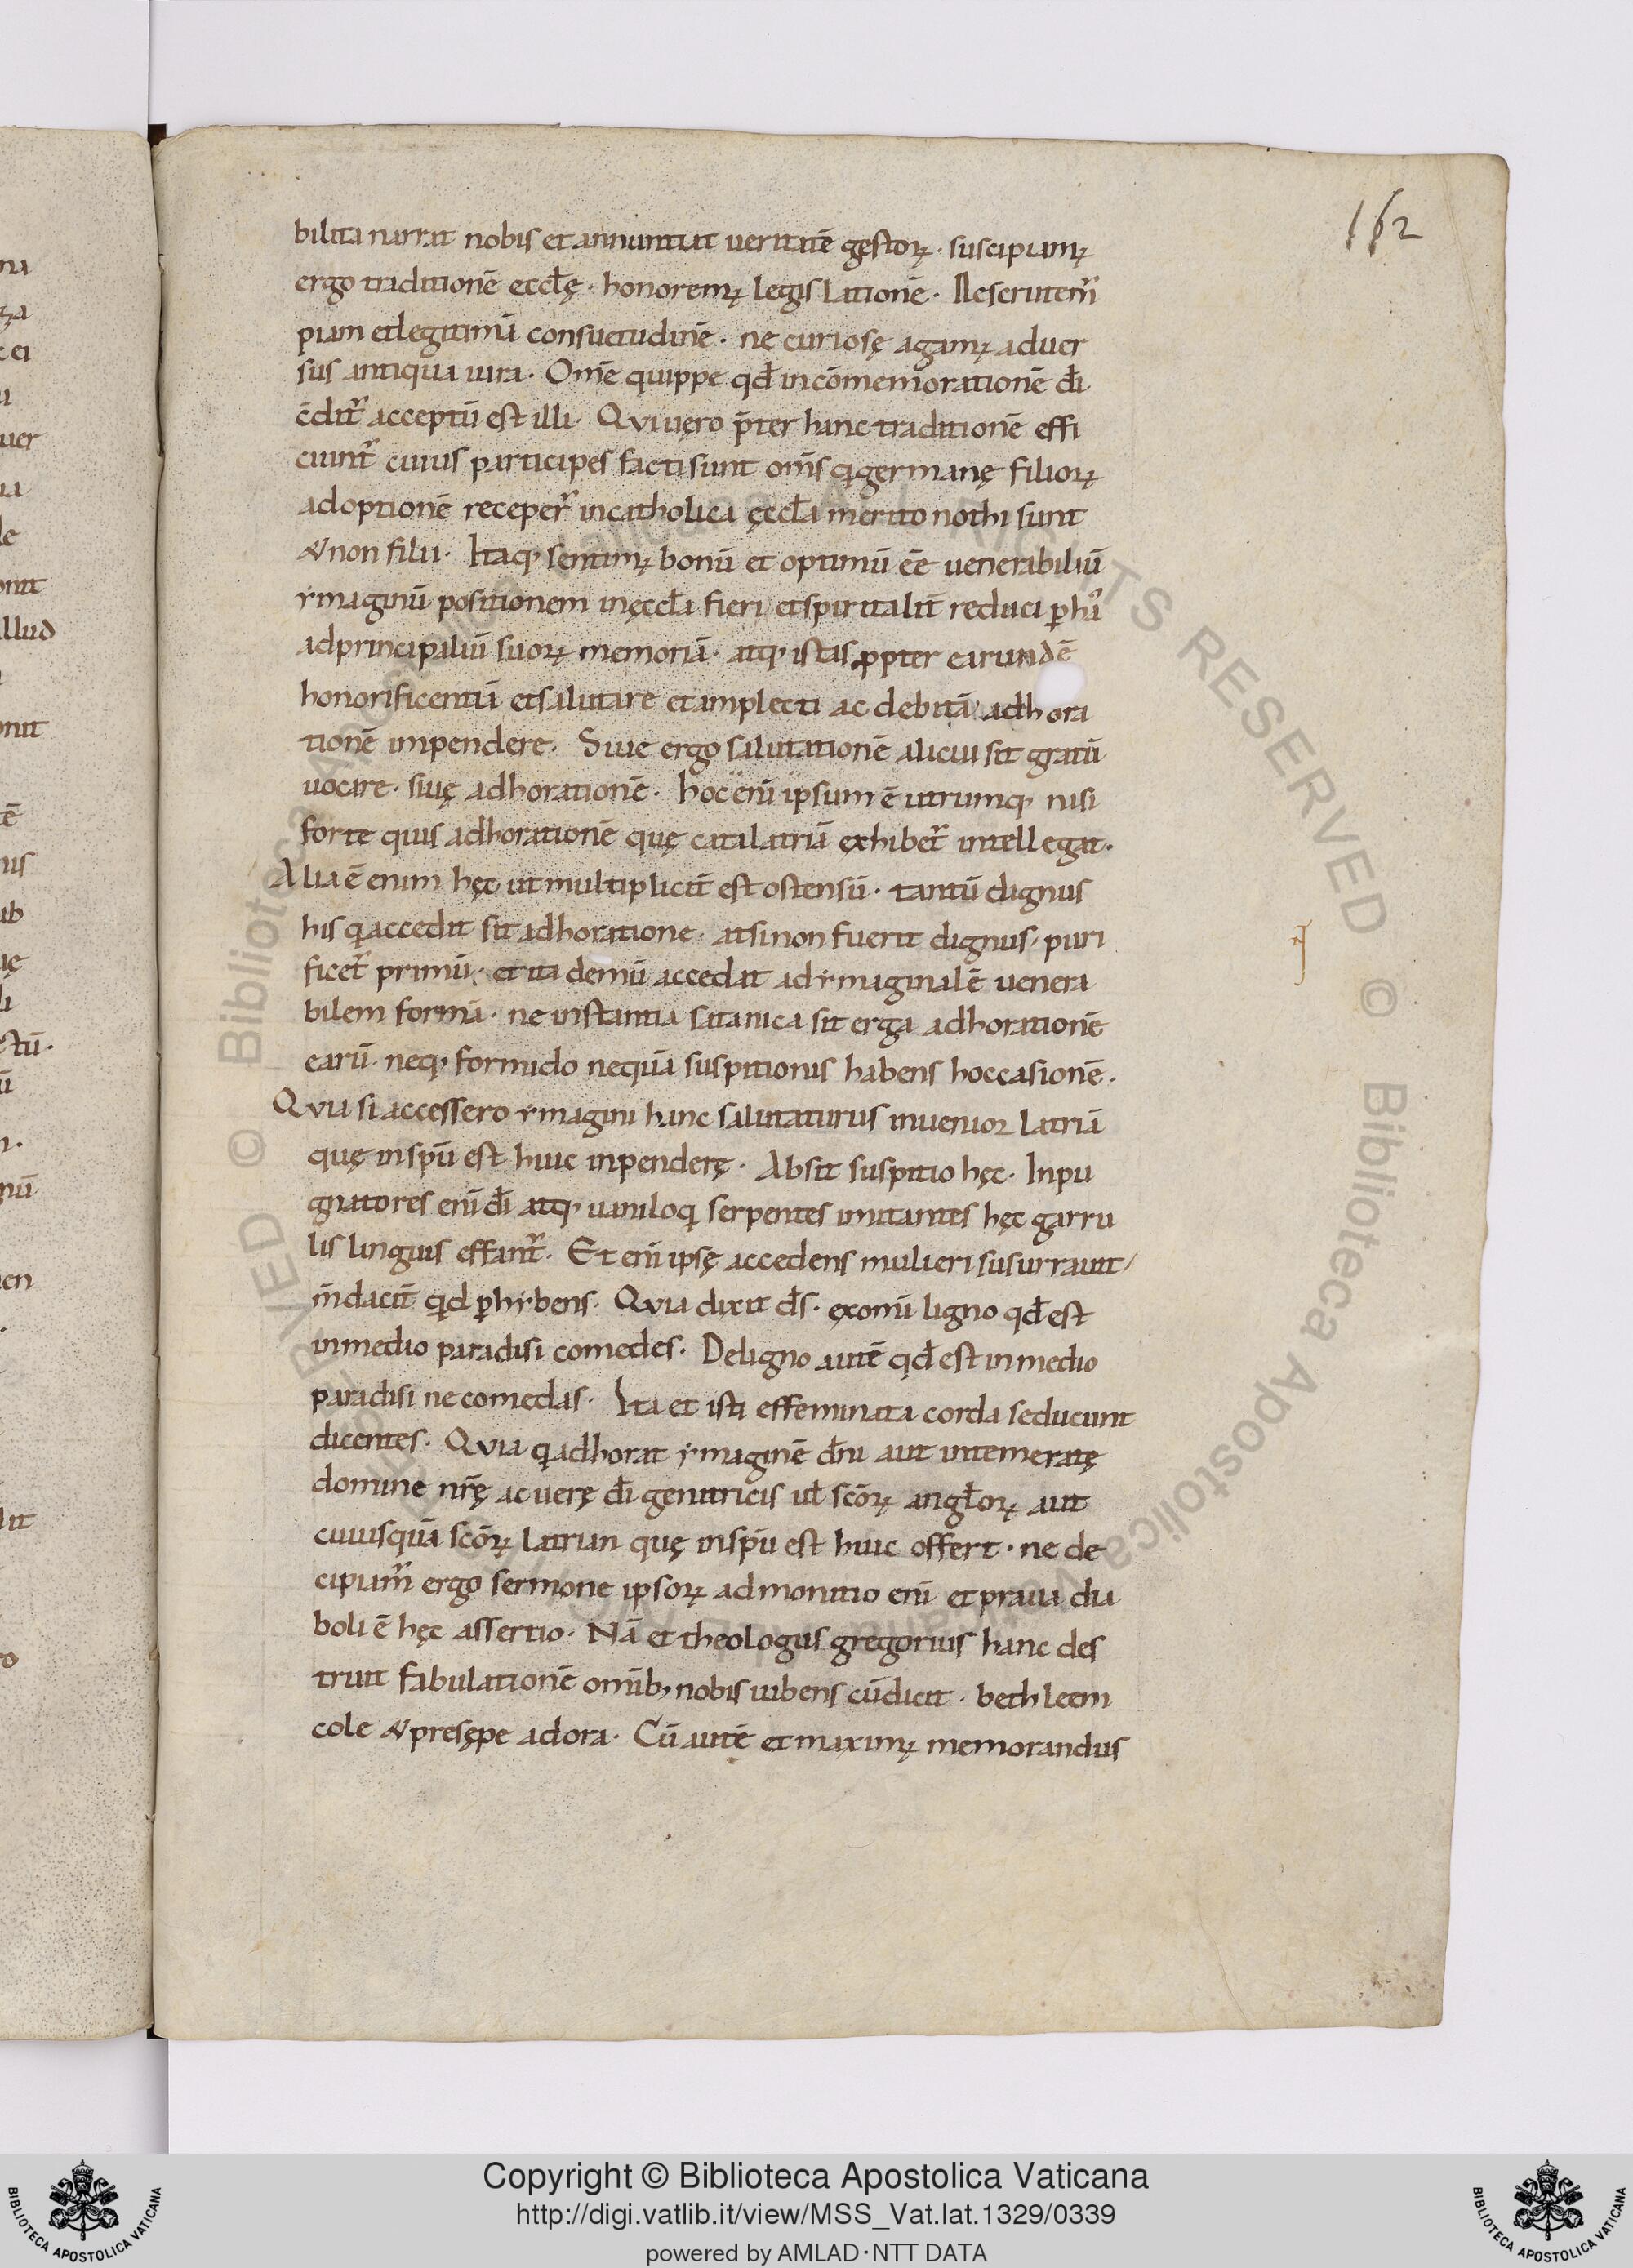 162
bilita narrat nobis et annuntiat ueritatē gestoꝝ · suscipiamꝰ
ergo traditionē eccƚę · honoremꝰ legislationē · Aescrutem̄
piam et legitimā consuetudinē · ne curiosę agamꝰ aduer
sus antiqua iura · Om̄e quippe qđ in cōmemorationē đi
ēditᷣ acceptū est illi · Qui uęro p̄ter hanc traditionē effi
ciuntᷣ cuius participes facti sunt om̄s qᵢ germanę filioꝝ
adoptionē receperᷣ in catholica ęccƚa merito nothi sunt
& non filii · Itaq; sentimꝰ bonū et optimū eē̄ uenerabiliū
ẏmaginū positionem in ęccƚa fieri et spiritalit̄ reduci ꝑ hā
ad principaliū suoꝝ memoriā · atq; istas ꝓpter earundē
honorificentiā et salutare et amplecti ac debitā adhora
tionē impendere · Siue ergo salutationē alicui sit gratū
uocare · siuę adhorationē · hoc enī ipsum ē utrumq; nisi
forte quis adhorationē quę cata latriā exhibetᷣ intellegat ·
Alia ē enim hęc ut multiplicit̄ est ostensū · tantū dignus
his qᵢ accedit sit adhoratione · at si non fuerit dignus · puri
ficetᷣ primū · et ita demū accedat ad ẏmaginalē uenera
bilem formā · ne instantia satanica sit erga adhorationē
earū · neq; formido nequā suspitionis habens hoccasionē ·
Quia si accessero ẏmagini hanc salutaturus inuenior latriā
quę in sp̄u est huic inpenderę · Absit suspitio hęc · Inpu
gnatores enī đi atq; uaniloqᵢ serpentes imitantes hęc garru
lis linguis effantᷣ · Et enī ipsę accedens mulieri susurrauit /
m̄dacit̄ qᵢd ꝑhẏbens · Quia dixit đs · ex omi ligno qđ est
in medio paradisi comedes · De ligno autē qđ est in medio
paradisi ne comedas · Ita et isti effeminata corda seducunt
dicentes · Quia qᵢ adhorat ẏmaginē dn̄i aut intemeratę
domine nr̄ę ac uerę đi genitricis uƚ scōꝝ angƚoꝝ aut
cuiusquā scōꝝ latrian quę in sp̄u est huic offert · ne de
cipiam̄ ergo sermone ipsoꝝ admonitio enī et praua dia
boli ē hęc assertio · Nā et theologus gregorius hanc des
truit fabulationē omib; nobis iubens cū dicit · bethleem
cole & presępe adora · Cū autē et maximꝰ memorandus
Copyright © Biblioteca Apostolica Vaticana
http://digi.vatlib.it/view/MSS_Vat.lat.1329/0339
powered by AMLAD·NTT DATA